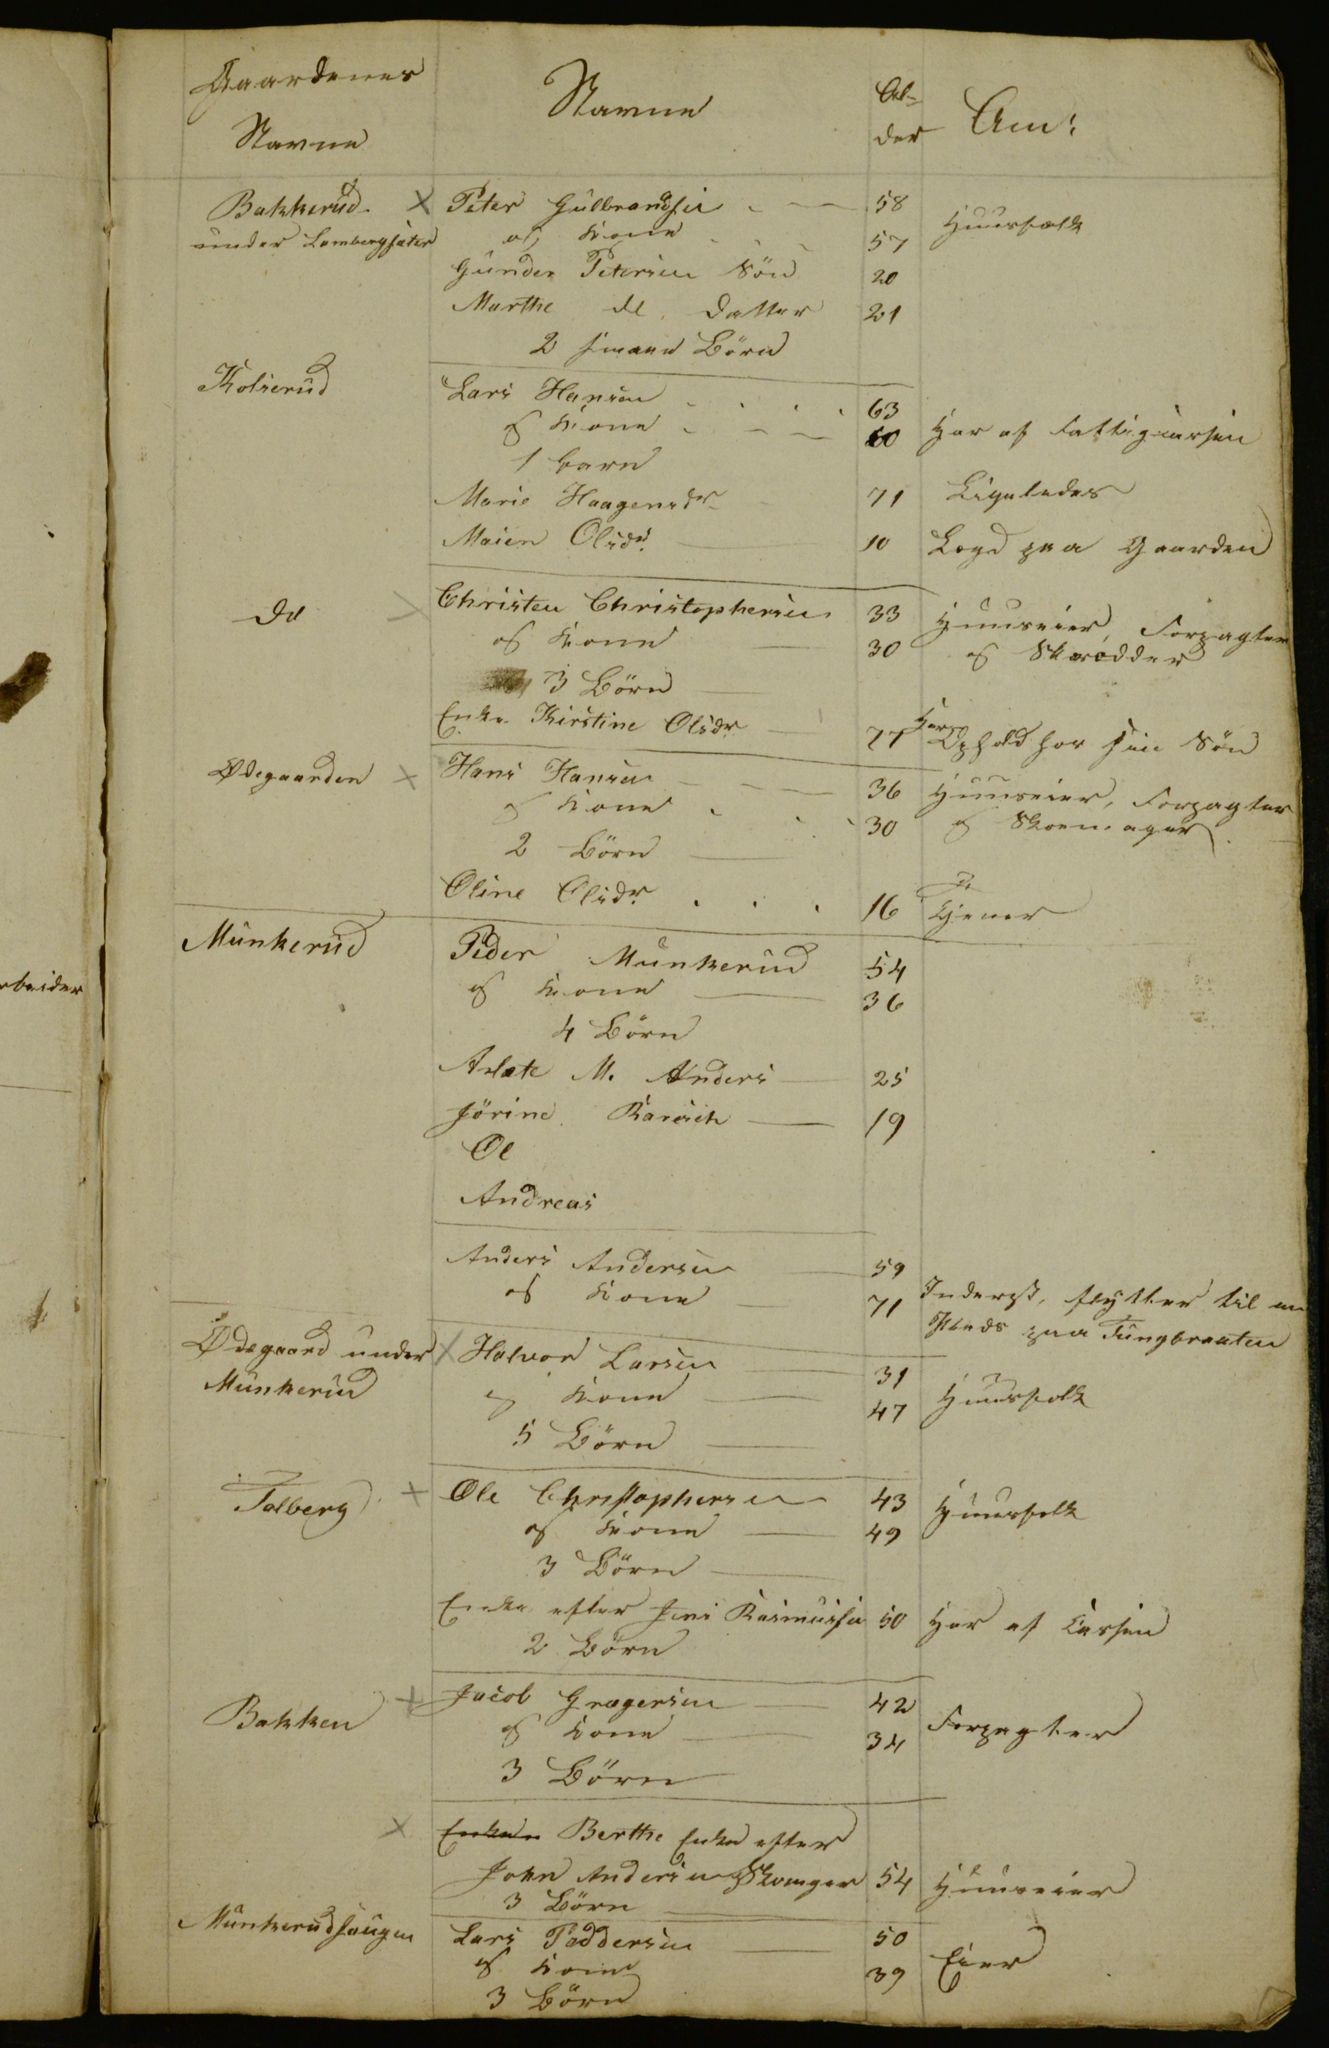 Gaardenes
Navne
Navne
Al-
der
Anm:
Bakkerud X Peter Gulbrandsen 58 Huusfolk
under Lambergsæter og Kone 57
Gunder Petersen Søn 20
Marthe do Datter 21
2 smaae Børn
Kolsrud Lars Hansen 63
og Kone 60 Har af Fattigcassen
1 barn
Marie Haagensdr 71 Ligeledes
Maien Olsdr 10 Lægd paa Gaarden
do X Christen Christophersen 33 Huuseier, Forpagter
og Kone 30 og Skrædder
3 Børn
Enke Kirstine Olsdr 77 Har Ophold hos sin Søn
Ødegaarden X Hans Hansen 36 Huuseier, Forpagter
og Kone 30 og Skoemager
2 Børn
Oline Olsdr 16 Tjener
Munkerud Peder Munkerud 54
og Kone 36
4 Børn
M. Anders 25
Jörine 19
Ol
Andreas
Anders Andersen 59
og Kone 71 Inderst, flytter til en
Plads paa Tungbraaten
Ødegaard under X Halvor Larsen 31
Munkerud og Kone 47 Huusfolk
5 Børn
Tolberg X Ole Christophersen 43 Huusfolk
og Kone 49
3 Børn
Enke efter Jens Rasmussen 50 Har af Cassen
2 Børn
Bakken X Jacob Gregersen 42 Forpagter
og Kone 34
3 Børn
X Enken Berthe Enke efter
John Andersen 54 Huuseier
3 Børn
Munkerudhaugen Lars Paddersen 50
og Kone 39 Eier
3 Børn
rbeider